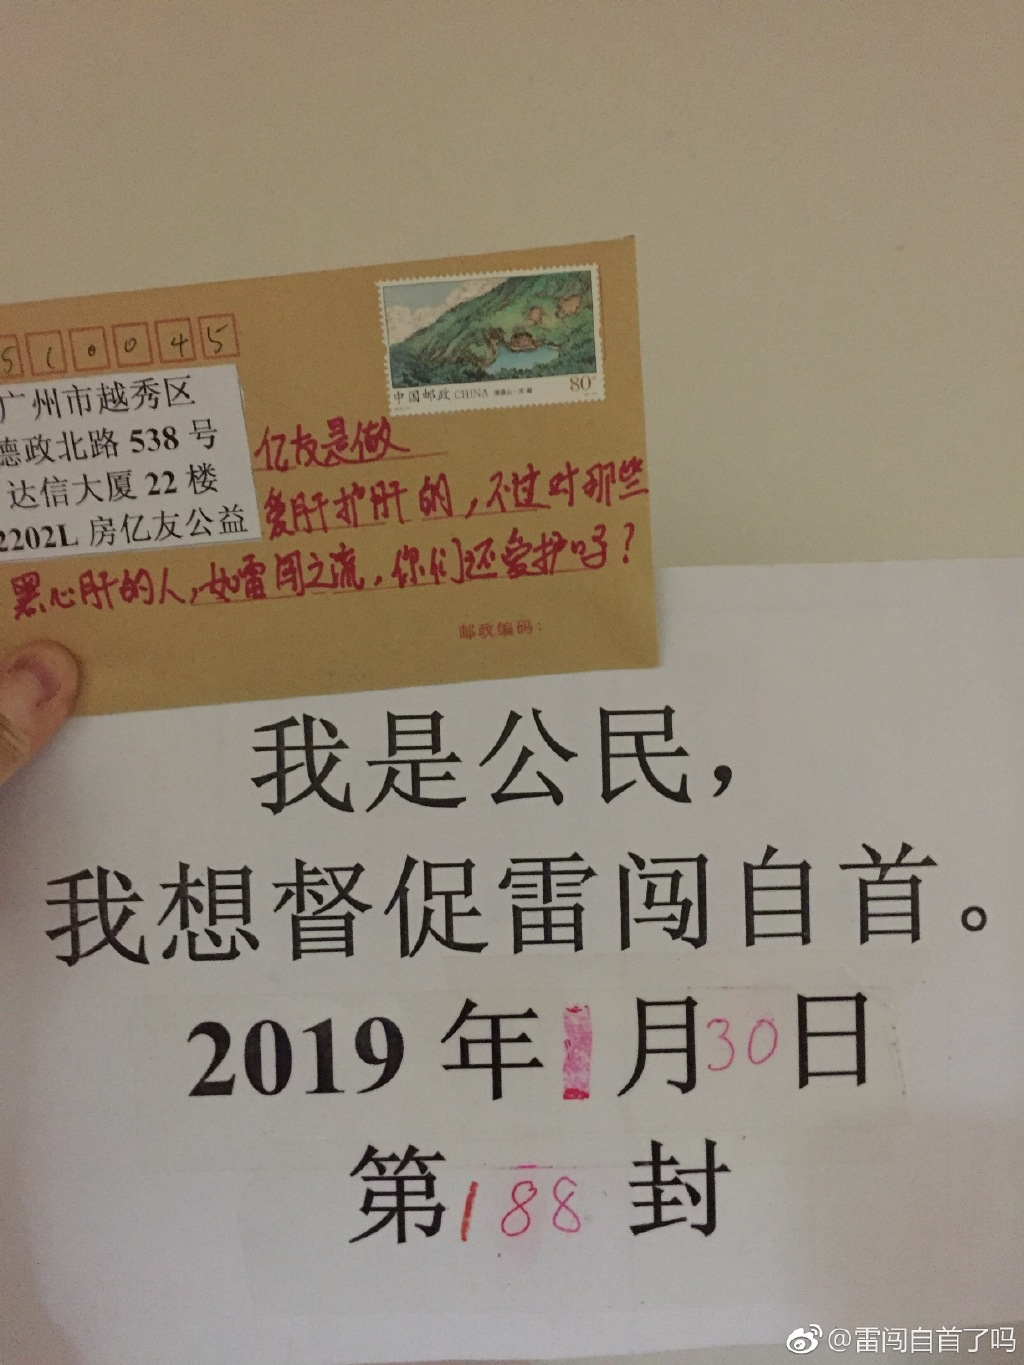 510045
广州市越秀区
德政北路 538 号
达信大厦 22 楼
2202L 房亿友公益
中国邮政 CHINA
80分
亿友是做
爱肝护肝的，不过对那些
黑心肝的人，如雷闯之流，你们还爱护吗？
邮政编码：
我是公民，
我想督促雷闯自首。
2019 年 1 月 30 日
第 188 封
@雷闯自首了吗